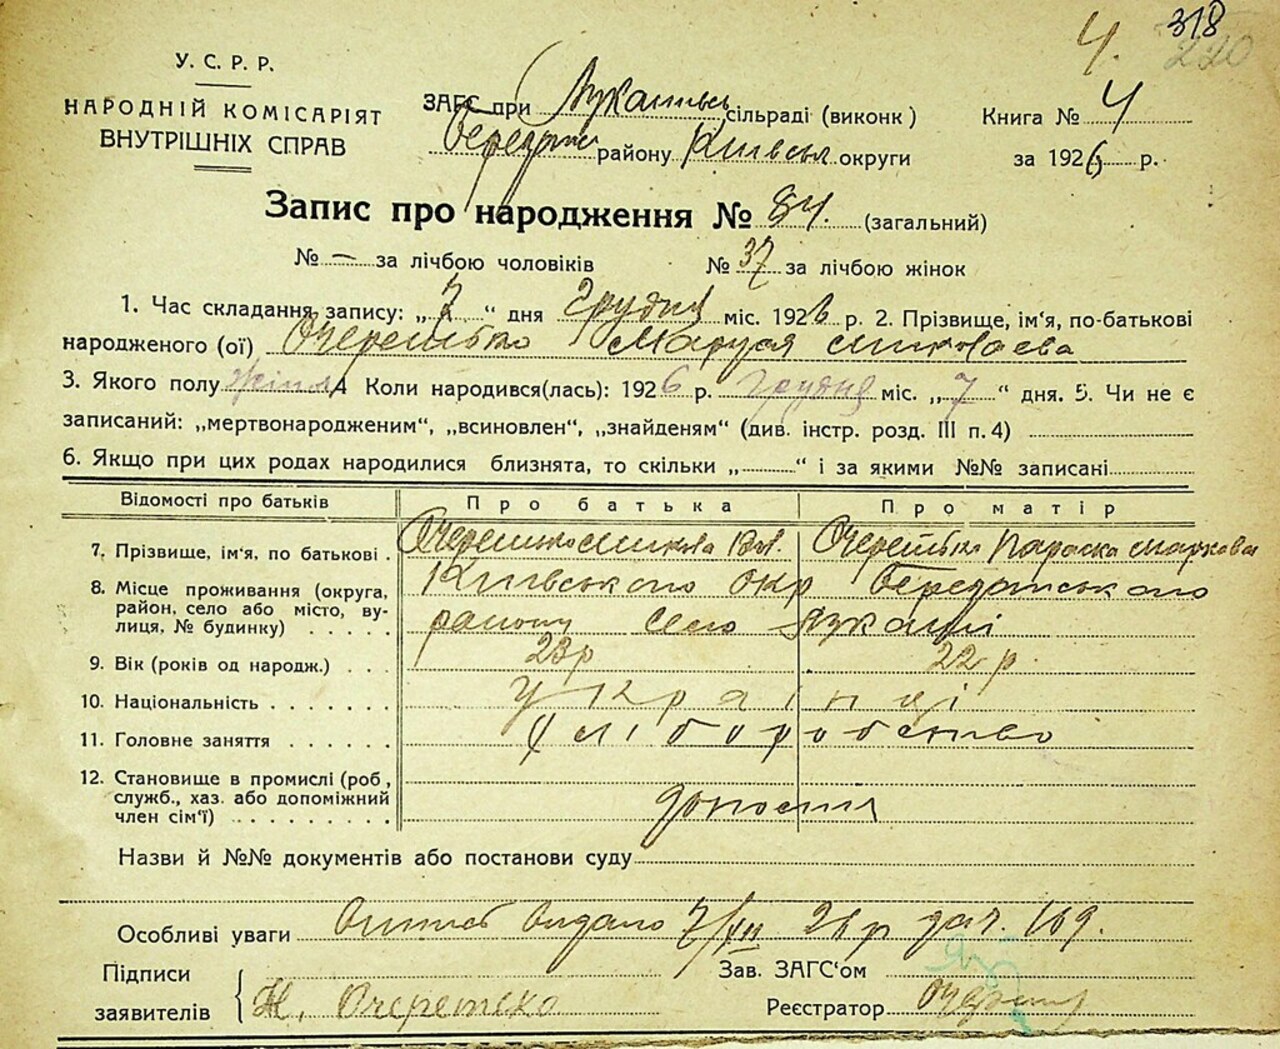 4. 318
220
У. С. Р. Р.
НАРОДНІЙ КОМІСАРІЯТ
ВНУТРІШНІХ СПРАВ
ЗАГС при Лукашівсь сільраді (виконк)
Книга № 4
району Київськ округи
за 1926 р.
Запис про народження № 84. (загальний)
№ — за лічбою чоловіків № 37 за лічбою жінок
1. Час складання запису: „7“ дня Грудня міс. 1926 р. 2. Прізвище, ім'я, по-батькові
народженого (ої) Очеретько Маруся Миколаєва
3. Якого полу жіноч 4 Коли народився(лась): 1926 р. Грудня міс. „7“ дня. 5. Чи не є
записаний: „мертвонародженим“, „всиновлен“, „знайденям“ (див. інстр. розд. III п. 4)
6. Якщо при цих родах народилися близнята, то скільки „ “ і за якими №№ записані
Відомості про батьків Про батька Про матір
7. Прізвище, ім'я, по батькові . Очеретько Микола Очеретько Параска Маркова
8. Місце проживання (округа, Київського окр Березанського
район, село або місто, ву-
лиця, № будинку) . . . . . району село Лукаші
9. Вік (років од народж.) . . . 23р 22 р.
10. Національність . . . . . . . українці
11. Головне заняття . . . . . . хліборобство
12. Становище в промислі (роб,
служб., хаз. або допоміжний
член сім'ї) . . . . . . . . .
Назви й №№ документів або постанови суду
Особливі уваги Виписъ видано 7/XII 26 р за ч. 169.
Підписи
заявителів Н. Очеретько
Зав. ЗАГС'ом
Реєстратор